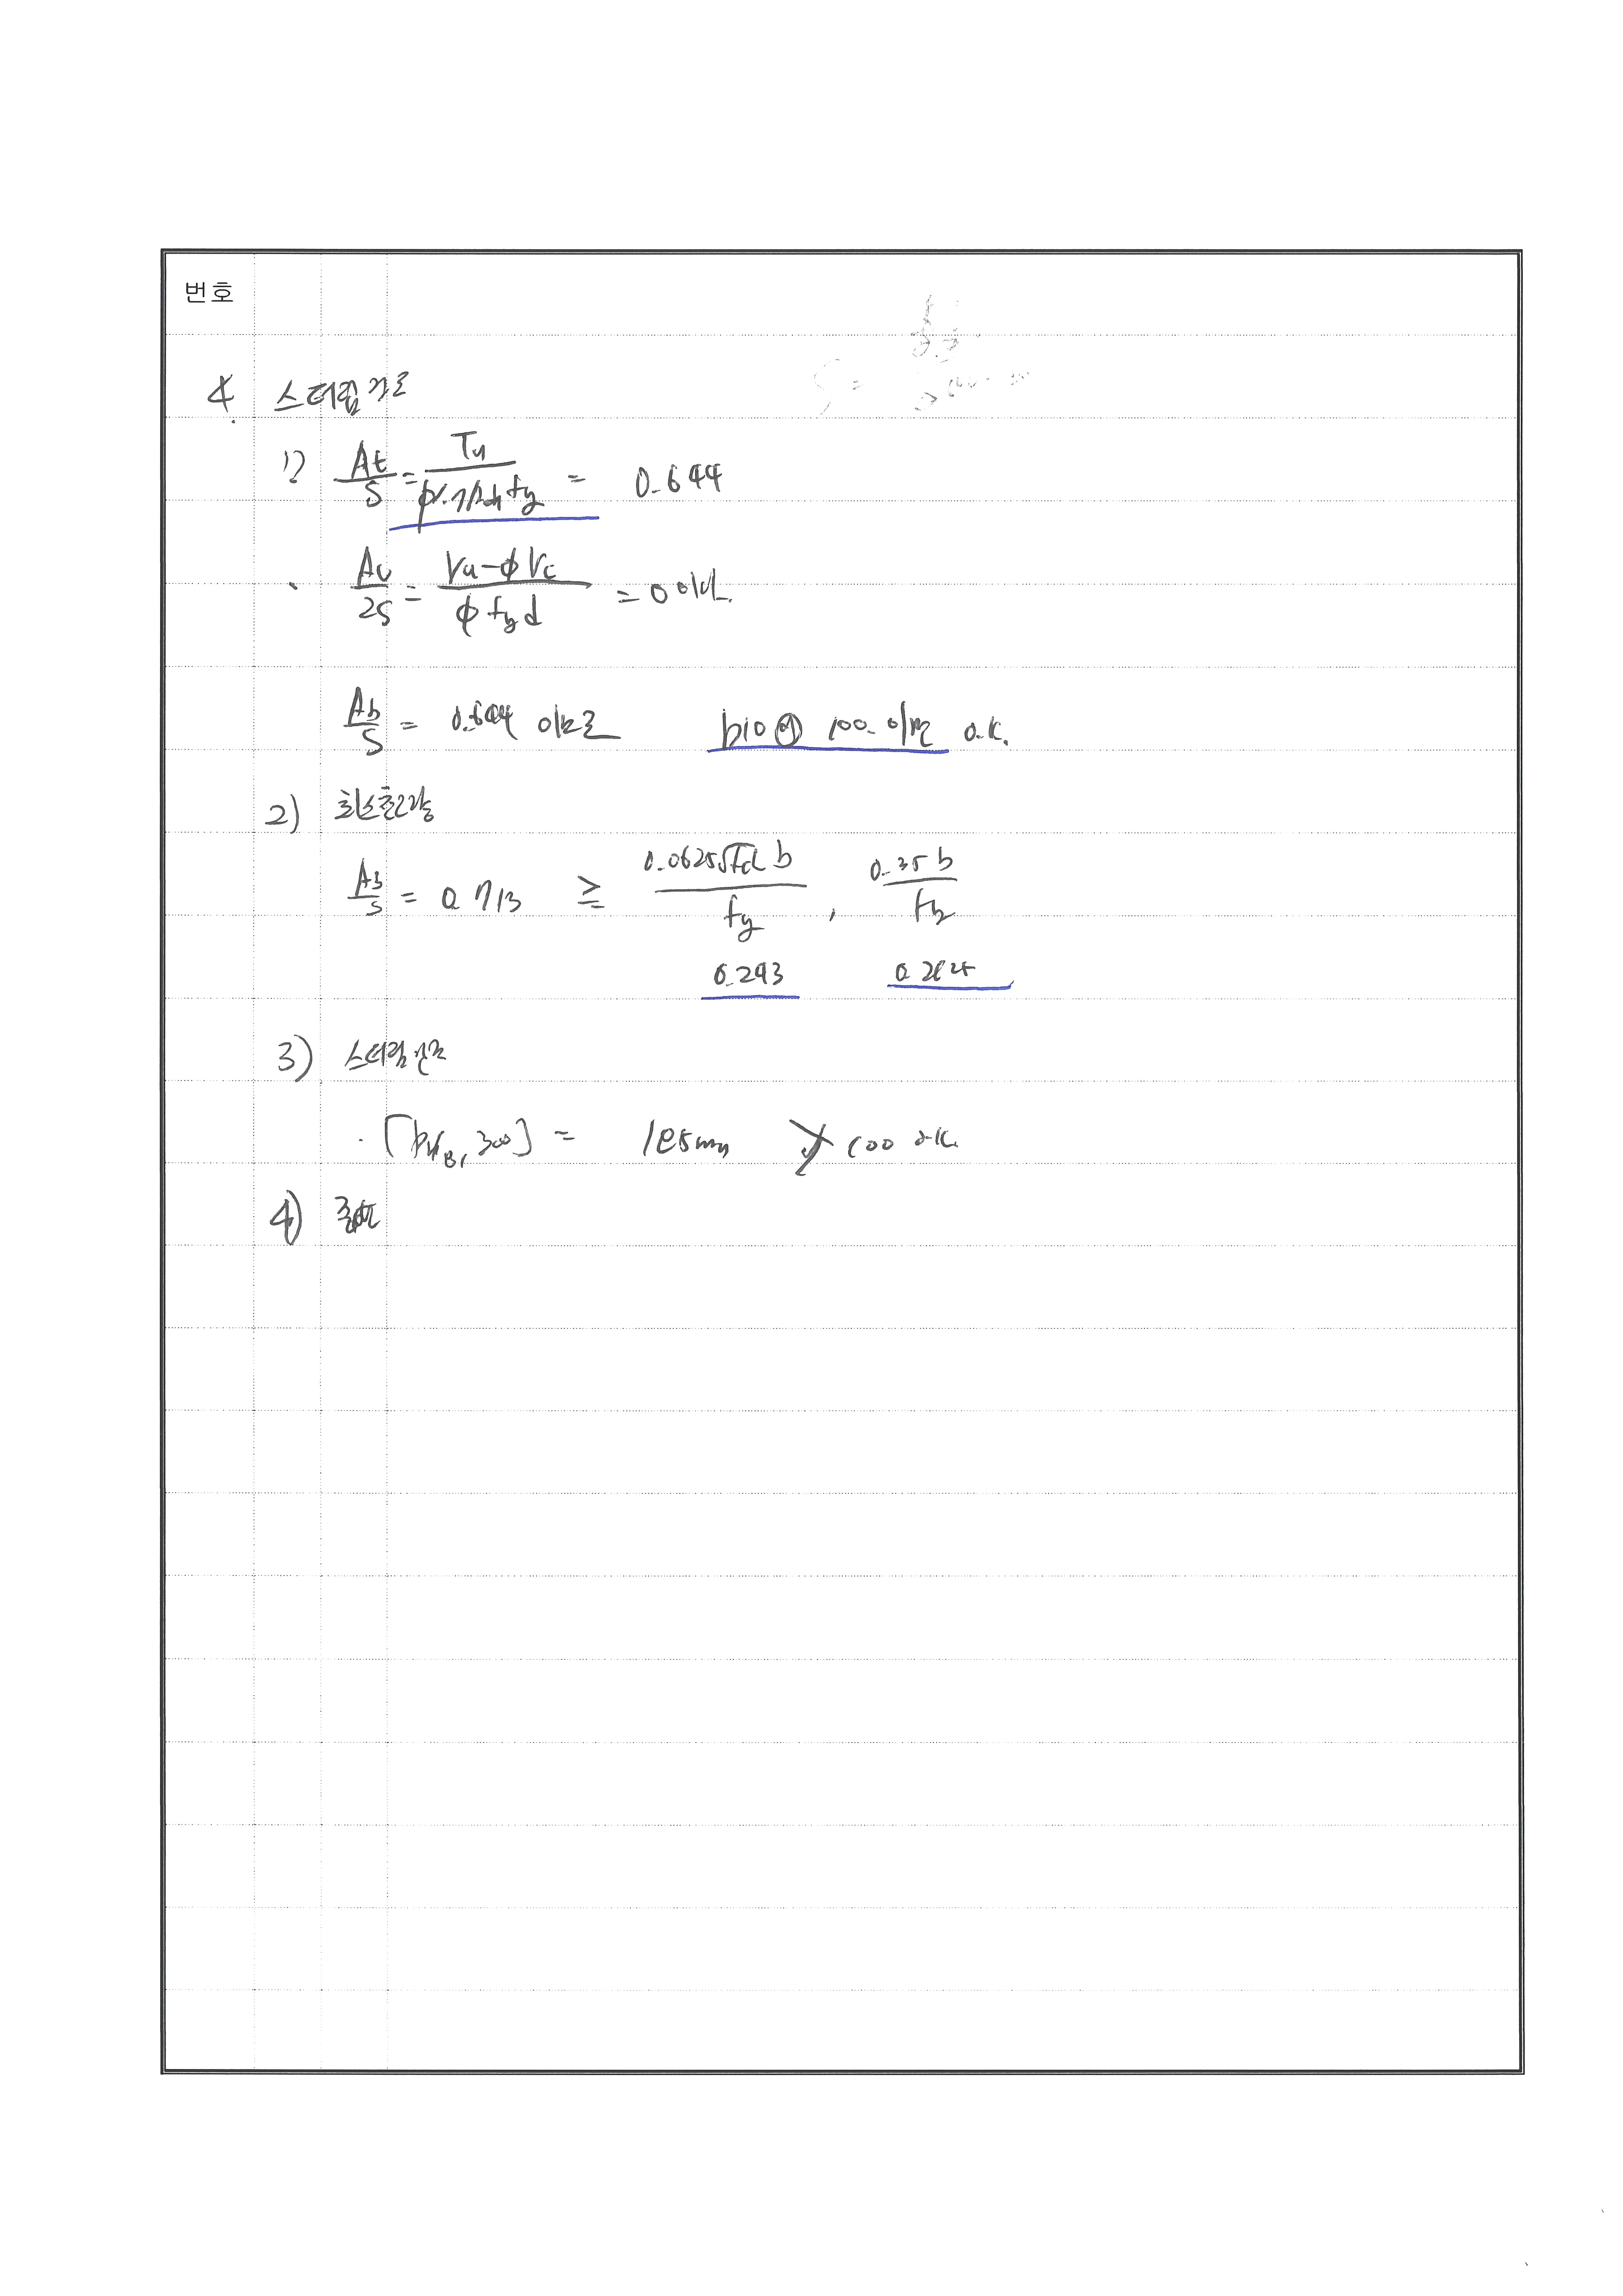 번호
4. 스터럽 검토
1) At/S = Tu / φ1.7Aoh fy = 0.644
· Av/2S = Vu-φVc / φ fy d = 0 이다.
Ab/S = 0.644 이므로 D10 @ 100 이면 o.k.
2) 최소철근량
Ab/S = 0.713 ≥ 0.0625√fck b / fy , 0.35 b / fy
0.293
3) 스터럽 간격
· [Ph/8, 300] = 185mm > 100 o.k.
4)